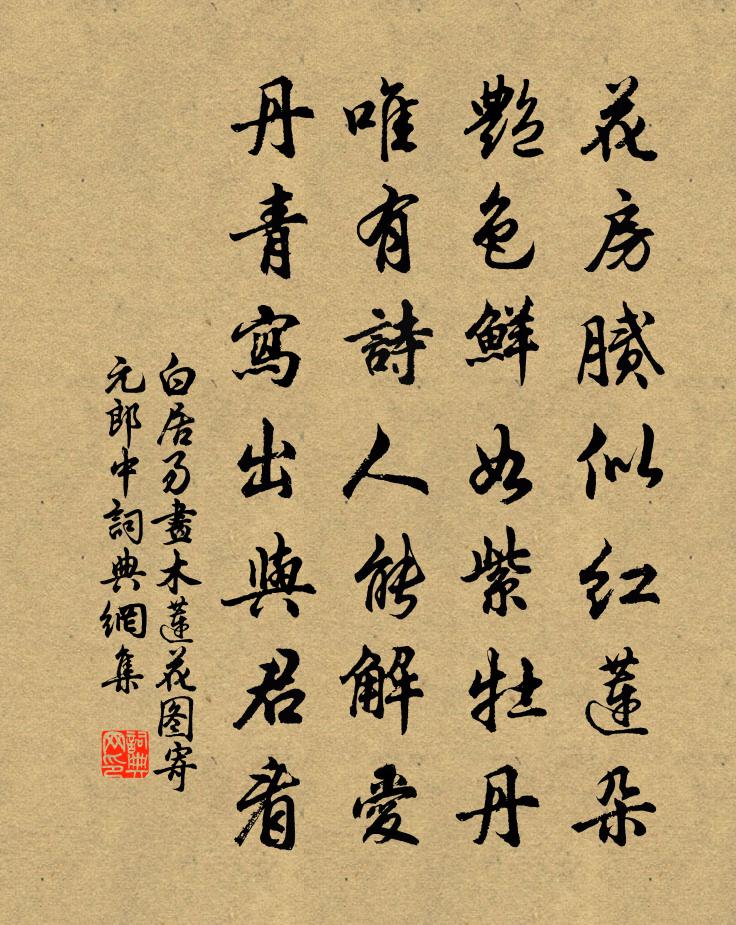 花房膩似紅蓮朵
艷色鮮如紫牡丹
唯有詩人能解愛
丹青寫出與君看
白居易畫木蓮花图寄
元郎中詞典網集
詞典网印